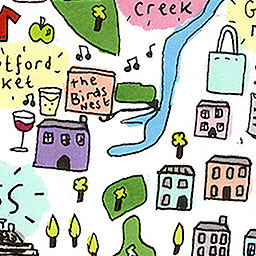 CREEK
tford
ket
the
Birds
Nest
SS